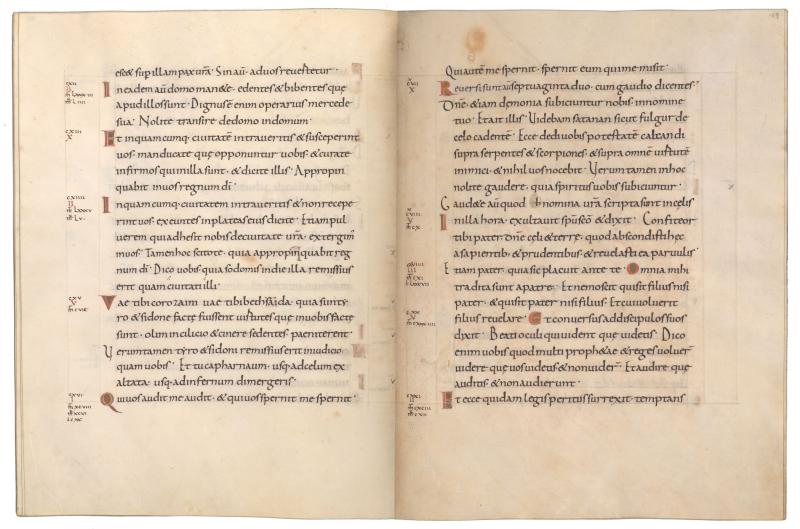 esc& sup illam pax ur̄a. Sin aū. ad uos reuertetur.
In eadem aū domo man&e. edentes & bibentes que
apud illos sunt. Dignus ē enim operarius mercede
sua. Nolite transire de domo in domum.
Et in quamcumq. ciuitatē intraueritis & susceperint
uos. manducate quę opponuntur uobis. & curate
infirmos qui in illa sunt. & dicite illis. Appropin
quabit in uos regnum dī.
In quamcumq. ciuitatem intraueritis & non recepe
rint uos. exeuntes in plateas eius dicite. Etiam pul
uerem qui adhesit nobis de ciuitate ur̄a. extergim̄
in uos. Tamen hoc scitote. quia appropinquabit reg
num dī. Dico uobis. quia sodomis in die illa remissius
erit quam ciuitati illi.
Vae tibi corozaim. uae tibi bethsaida. quia si in ty
ro & sidone factę fuissent uirtutes quę in uobis factę
sunt. olim in cilicio & cinere sedentes paeniterent.
Uerumtamen tyro & sidoni remissius erit in iudicio
quam uobis. Et tu capharnaum. usq. ad celum ex
altata. usq. ad infernum dimergeris.
Qui uos audit me audit. & qui uos spernit me spernit.
Qui autē me spernit. spernit eum qui me misit.
Reuersi sunt aū septuaginta duo. cum gaudio dicentes.
Dn̄e. & iam dęmonia subiciuntur nobis in nomine
tuo. Et ait illis. Uidebam satanan sicut fulgur de
celo cadentē. Ecce dedi uobis potestatē calcandi
supra serpentes & scorpiones. & supra omnē uirtutē
inimici. & nihil uos nocebit. Uerum tamen in hoc
nolite gaudere. quia spiritus uobis subiciuntur.
Gaud&e aū quod nomina ur̄a scripta sunt in celis
In illa hora. exultauit sp̄u sc̄o & dixit. Confiteor
tibi pater. dn̄e cęli & terrę. quod abscondisti hęc
a sapientib. & prudentibus. & reuelasti ea paruulis.
Etiam pater. quia sic placuit ante te. Omnia mihi
tradita sunt a patre. Et nemo scit qui sit filius nisi
pater. & qui sit pater nisi filius. Et cui uoluerit
filius reuelare. Et conuersus ad discipulos suos
dixit. Beati oculi qui uident quę uidetis. Dico
enim uobis quod multi proph&ae & reges uoluer̄
uidere quę uos uidetis & non uider̄. Et audire quę
auditis. & non audierunt.
Et ecce quidam legis peritus surrexit. temptans